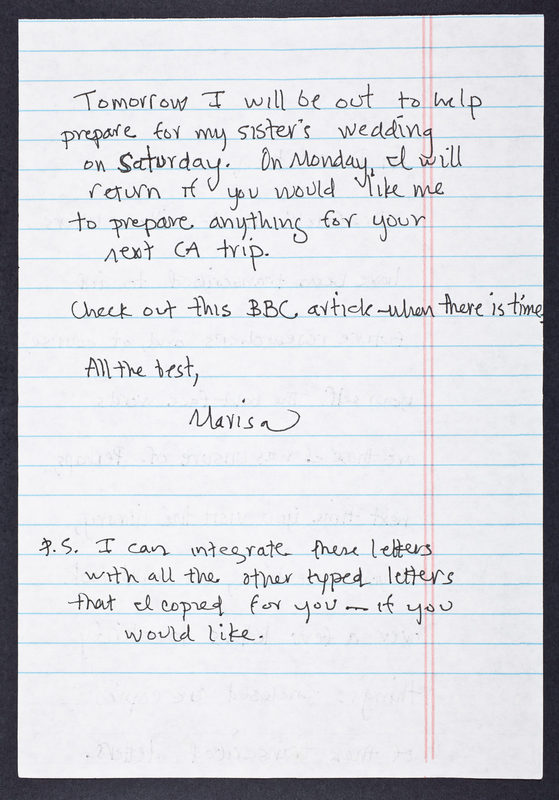 Tomorrow I will be out to help
prepare for my sister's wedding
on Saturday. On Monday, I will
return if you would like me
to prepare anything for your
next CA trip.
Check out this BBC article - when there is time
All the best,
Marisa
P.S. I can integrate these letters
with all the other typed letters
that I copied for you — if you
would like.